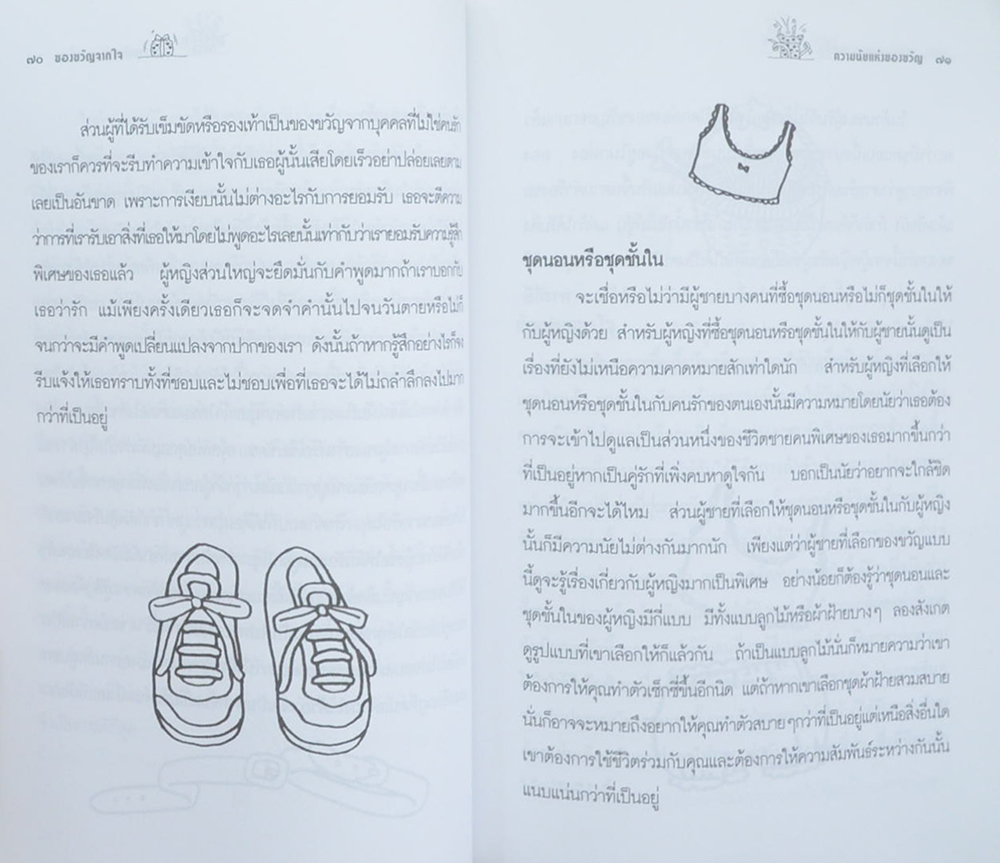 ๗๐ ของขวัญจากใจ
ส่วนผู้ที่ได้รับเข็มขัดหรือรองเท้าเป็นของขวัญจากบุคคลที่ไม่ใช่คนรัก
ของเราก็ควรที่จะรีบทำความเข้าใจกับเธอผู้นั้นเสียโดยเร็วอย่าปล่อยเลยตาม
เลยเป็นอันขาด เพราะการเงียบนั้นไม่ต่างอะไรกับการยอมรับ เธอจะตีความ
ว่าการที่เรารับเอาสิ่งที่เธอให้มาโดยไม่พูดอะไรเลยนั้นเท่ากับว่าเรายอมรับความรู้สึก
พิเศษของเธอแล้ว ผู้หญิงส่วนใหญ่จะยึดมั่นกับคำพูดมากถ้าเราบอกกับ
เธอว่ารัก แม้เพียงครั้งเดียวเธอก็จะจดจำคานั้นไปจนวันตายหรือไม่ก็
จนกว่าจะมีคำพูดเปลี่ยนแปลงจากปากของเรา ดังนั้นถ้าหากรู้สึกอย่างไรก็จง
รีบแจ้งให้เธอทราบทั้งที่ชอบและไม่ชอบเพื่อที่เธอจะได้ไม่ถลำลึกลงไปมาก
กว่าที่เป็นอยู่
ความนัยแห่งของขวัญ ๗๑
ชุดนอนหรือชุดชั้นใน
จะเชื่อหรือไม่ว่ามีผู้ชายบางคนที่ซื้อชุดนอนหรือไม่ก็ชุดชั้นในให้
กับผู้หญิงด้วย สำหรับผู้หญิงที่ซื้อชุดนอนหรือชุดชั้นในให้กับผู้ชายนั้นดูเป็น
เรื่องที่ยังไม่เหนือความคาดหมายสักเท่าใดนัก สำหรับผู้หญิงที่เลือกให้
ชุดนอนหรือชุดชั้นในกับคนรักของตนเองนั้นมีความหมายโดยนัยว่าเธอต้อง
การจะเข้าไปดูแลเป็นส่วนหนึ่งของชีวิตชายคนพิเศษของเธอมากขึ้นกว่า
ที่เป็นอยู่หากเป็นคู่รักที่เพิ่งคบหาดูใจกัน บอกเป็นนัยว่าอยากจะใกล้ชิด
มากขึ้นอีกจะได้ไหม ส่วนผู้ชายที่เลือกให้ชุดนอนหรือชุดชั้นในกับผู้หญิง
นั้นก็มีความนัยไม่ต่างกันมากนัก เพียงแต่ว่าผู้ชายที่เลือกของขวัญแบบ
นี้ดูจะรู้เรื่องเกี่ยวกับผู้หญิงมากเป็นพิเศษ อย่างน้อยก็ต้องรู้ว่าชุดนอนและ
ชุดชั้นในของผู้หญิงมีกี่แบบ มีทั้งแบบลูกไม้หรือผ้าฝ้ายบางๆ ลองสังเกต
ดูรูปแบบที่เขาเลือกให้ก็แล้วกัน ถ้าเป็นแบบลูกไม้นั่นก็หมายความว่าเขา
ต้องการให้คุณทำตัวเซ็กซี่ขึ้นอีกนิด แต่ถ้าหากเขาเลือกชุดผ้าฝ้ายสวมสบาย
นั่นก็อาจจะหมายถึงอยากให้คุณทำตัวสบายๆกว่าที่เป็นอยู่แต่เหนือสิ่งอื่นใด
เขาต้องการใช้ชีวิตร่วมกับคุณและต้องการให้ความสัมพันธ์ระหว่างกันนั้น
แนบแน่นกว่าที่เป็นอยู่